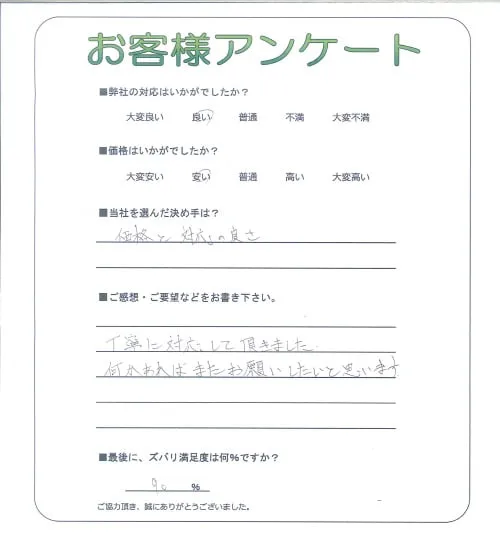 お客様アンケート
■弊社の対応はいかがでしたか？
大変良い 良い 普通 不満 大変不満
■価格はいかがでしたか？
大変安い 安い 普通 高い 大変高い
■当社を選んだ決め手は？
価格と対応の良さ
■ご感想・ご要望などをお書き下さい。
丁寧に対応して頂きました
何かあればまたお願いしたいと思います
■最後に、ズバリ満足度は何%ですか？
90 %
ご協力頂き、誠にありがとうございました。